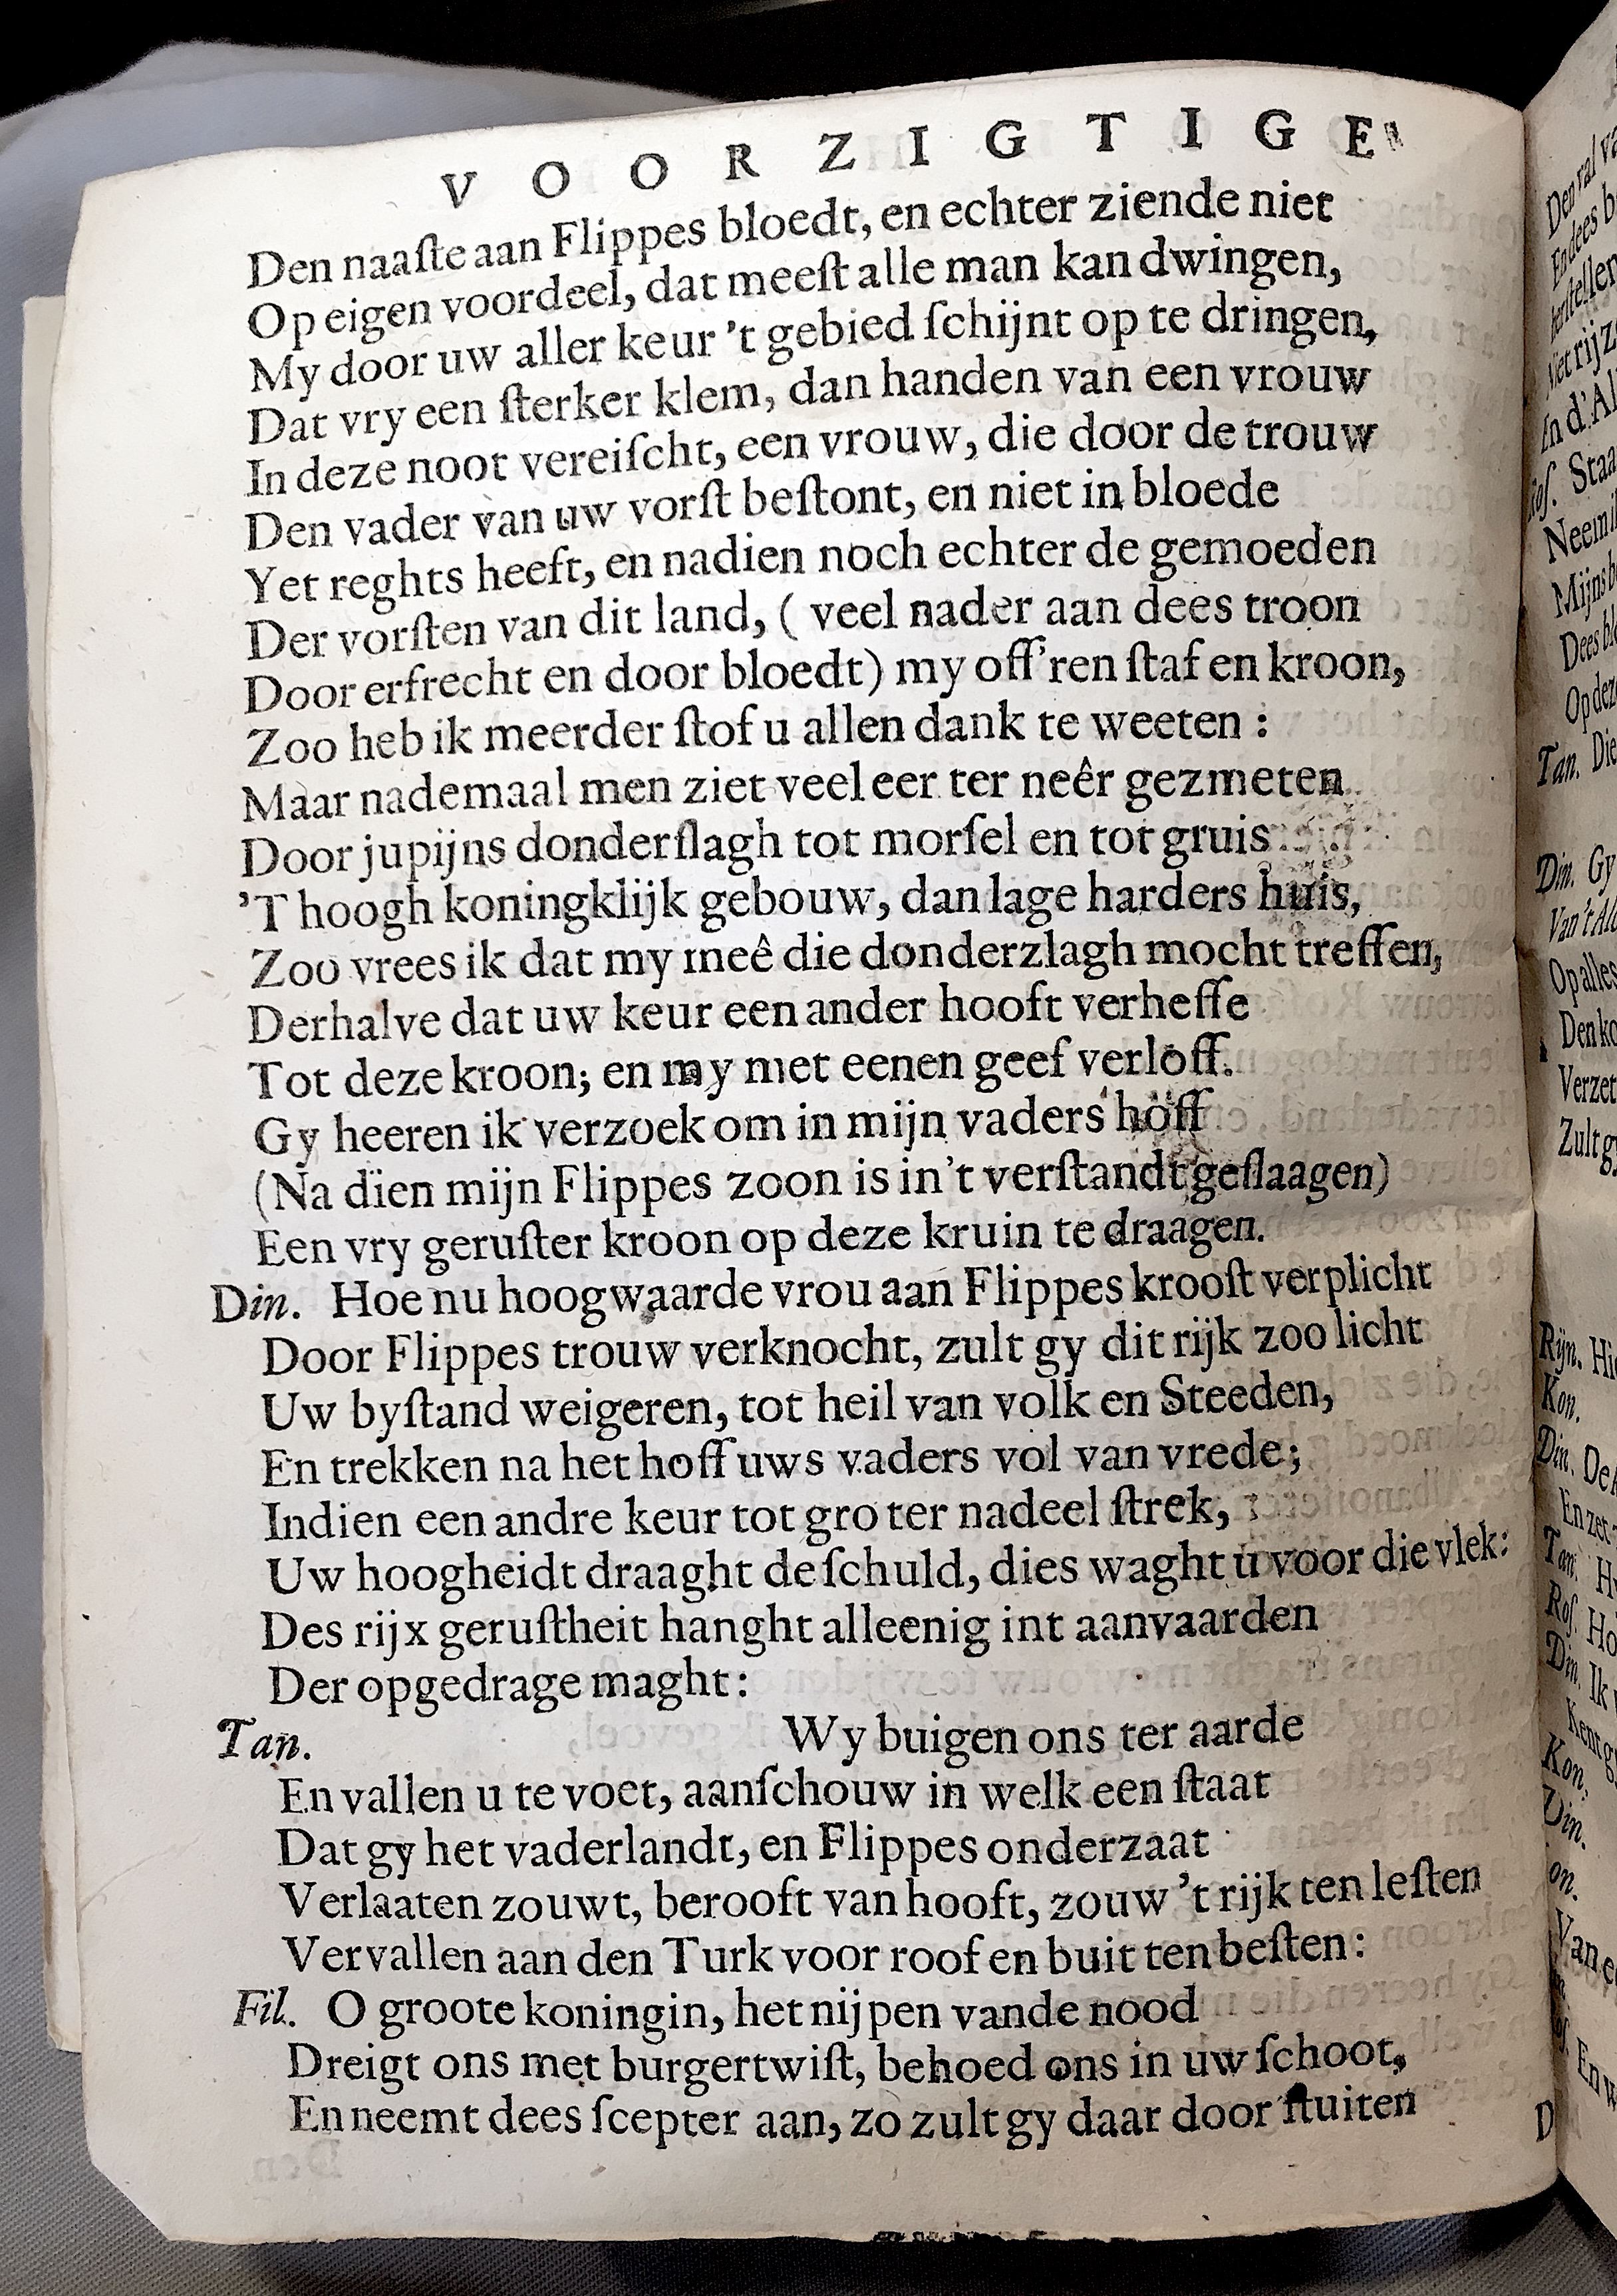 V O O R Z I G T I G E
Den naaſte aan Flippes bloedt, en echter ziende niet
Op eigen voordeel, dat meeſt alle man kan dwingen,
My door uw aller keur 't gebied ſchijnt op te dringen,
Dat vry een ſterker klem, dan handen van een vrouw
In deze noot vereiſcht, een vrouw, die door de trouw
Den vader van uw vorſt beſtont, en niet in bloede
Yet reghts heeft, en nadien noch echter de gemoeden
Der vorſten van dit land, ( veel nader aan dees troon
Door erfrecht en door bloedt) my off'ren ſtaf en kroon,
Zoo heb ik meerder ſtof u allen dank te weeten :
Maar nademaal men ziet veel eer ter neêr gezmeten
Door jupijns donderſlagh tot morſel en tot gruis
'T hoogh koningklijk gebouw, dan lage harders huis,
Zoo vrees ik dat my meê die donderzlagh mocht treffen,
Derhalve dat uw keur een ander hooft verheffe
Tot deze kroon; en my met eenen geef verloff.
Gy heeren ik verzoek om in mijn vaders hoff
(Na dien mijn Flippes zoon is in't verſtandt geſlaagen)
Een vry geruſter kroon op deze kruin te draagen.
Din. Hoe nu hoogwaarde vrou aan Flippes krooſt verplicht
Door Flippes trouw verknocht, zult gy dit rijk zoo licht
Uw byſtand weigeren, tot heil van volk en Steeden,
En trekken na het hoff uws vaders vol van vrede;
Indien een andre keur tot gro ter nadeel ſtrek,
Uw hoogheidt draaght de ſchuld, dies waght u voor die vlek:
Des rijx geruſtheit hanght alleenig int aanvaarden
Der opgedrage maght:
Tan. Wy buigen ons ter aarde
En vallen u te voet, aanſchouw in welk een ſtaat
Dat gy het vaderlandt, en Flippes onderzaat
Verlaaten zouwt, berooft van hooft, zouw 't rijk ten leſten
Vervallen aan den Turk voor roof en buit ten beſten:
Fil. O groote koningin, het nijpen vande nood
Dreigt ons met burgertwiſt, behoed ons in uw ſchoot,
En neemt dees ſcepter aan, zo zult gy daar door ſtuiten
Den val
En dees
Niet rijz
In d'Al
Roſ. Staa
Mijns
Op dez
Tan. Die
Din. Gy
Van't Al
Op alles
Den ko
Verzet
Zult g
Rijn. Hi
Kon.
Din. De
En zet
Tan. H
Roſ. Ho
Din. Ik
Kent g
Kon.
Din.
on.
Van e
En w
D